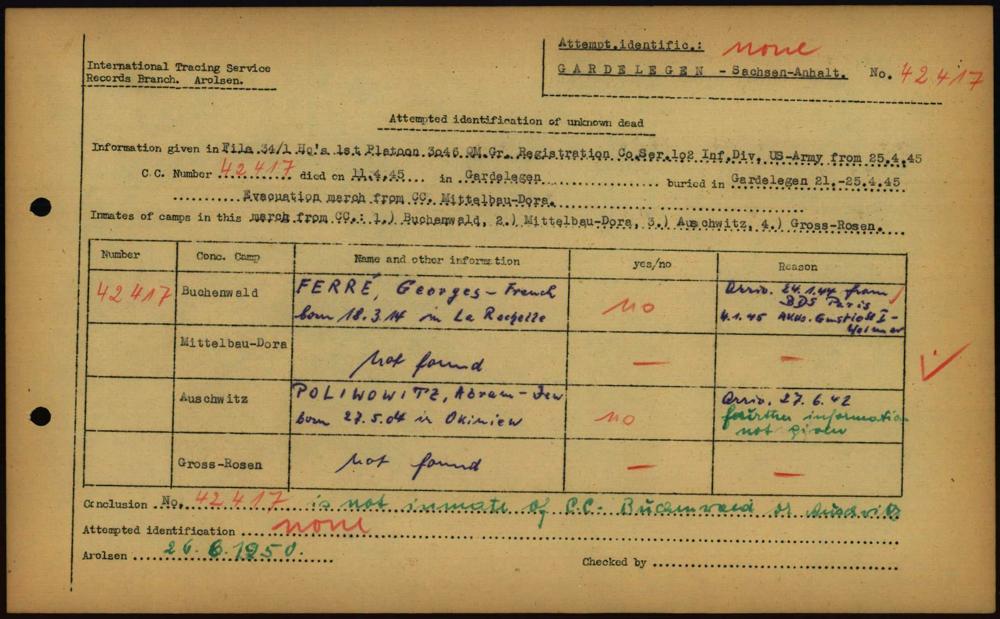 Attempt.identific.: none
International Tracing Service
Records Branch. Arolsen.
GARDELEGEN - Sachsen-Anhalt. No. 42417
Attempted identification of unknown dead
Information given in File 34/1 Hq's 1st Platoon 3046 QM.Gr. Registration Co.Ser.102 Inf.Div. US-Army from 25.4.45
C.C. Number 42417 died on 11.4.45 in Gardelegen buried in Gardelegen 21.-25.4.45
Evacuation march from CC. Mittelbau-Dora.
Inmates of camps in this march from CC.: 1.) Buchenwald, 2.) Mittelbau-Dora, 3.) Auschwitz, 4.) Gross-Rosen.
Number Conc. Camp Name and other information yes/no Reason
42417 Buchenwald FERRÉ, Georges - French no Arriv. 24.1.44 from
born 18.3.14 in La Rochelle BDS Paris
4.1.45 AKdo. Gustloff I-
Weimar
Mittelbau-Dora not found — —
Auschwitz POLIWOWITZ, Abram - Jew no Arriv. 27.6.42
born 27.5.04 in Okiniew further information
not given
Gross-Rosen not found — —
Conclusion No. 42417 is not inmate of C.C. Buchenwald or Auschwitz
Attempted identification none
Arolsen 26.6.1950.
Checked by